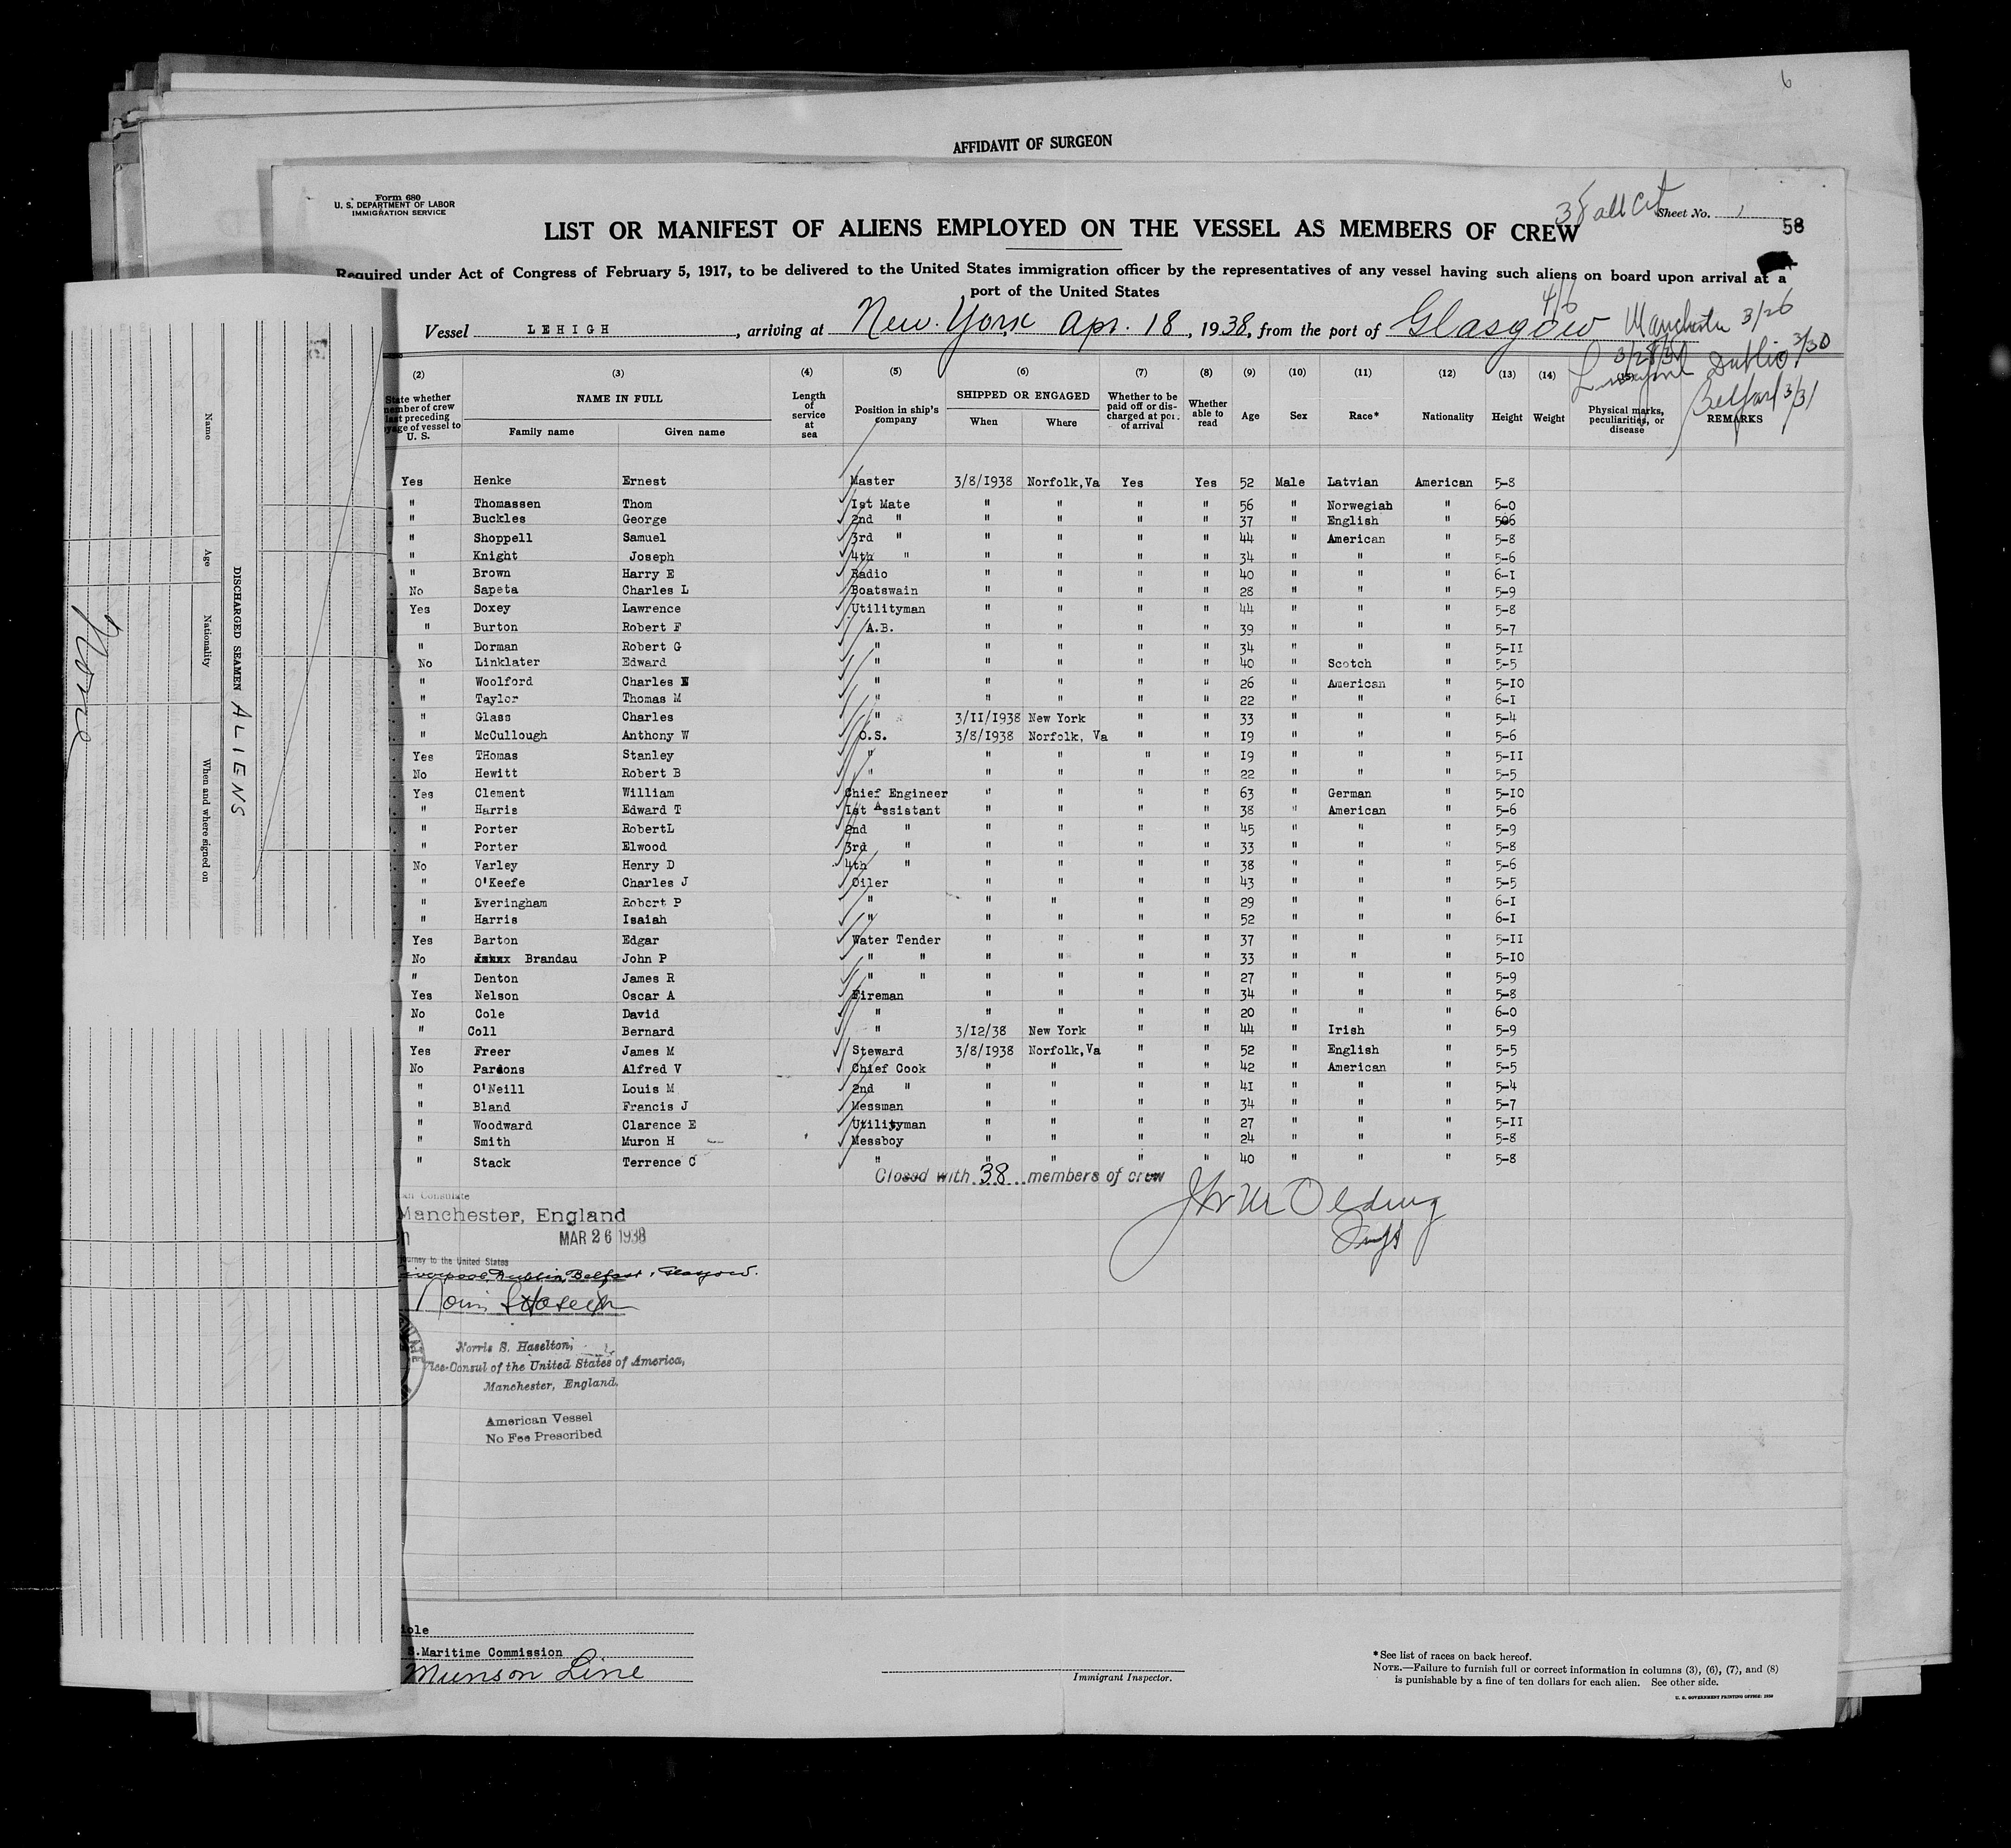 6
AFFIDAVIT OF SURGEON
Form 680
U. S. DEPARTMENT OF LABOR
IMMIGRATION SERVICE
38 all Cit
Sheet No. 1
58
LIST OR MANIFEST OF ALIENS EMPLOYED ON THE VESSEL AS MEMBERS OF CREW
Required under Act of Congress of February 5, 1917, to be delivered to the United States immigration officer by the representatives of any vessel having such aliens on board upon arrival at a
port of the United States
Vessel LEHIGH, arriving at New York Apr. 18, 1938, from the port of Glasgow 4/6 Manchester 3/26
Liverpool 3/28 Dublin 3/30
Belfast 3/31
(2) (3) (4) (5) (6) (7) (8) (9) (10) (11) (12) (13) (14) (15)
State whether member of crew last preceding voyage of vessel to U. S.
NAME IN FULL
Family name
Given name
Length of service at sea
Position in ship's company
SHIPPED OR ENGAGED
When
Where
Whether to be paid off or discharged at port of arrival
Whether able to read
Age
Sex
Race*
Nationality
Height
Weight
Physical marks, peculiarities, or disease
REMARKS
Yes Henke Ernest Master 3/8/1938 Norfolk,Va Yes Yes 52 Male Latvian American 5-8
" Thomassen Thom Ist Mate " " " " 56 " Norwegian " 6-0
" Buckles George 2nd " " " " " 37 " English " 506
" Shoppell Samuel 3rd " " " " " 44 " American " 5-8
" Knight Joseph 4th " " " " " 34 " " " 5-6
" Brown Harry E Radio " " " " 40 " " " 6-I
No Sapeta Charles L Boatswain " " " " 28 " " " 5-9
Yes Doxey Lawrence Utilityman " " " " 44 " " " 5-8
" Burton Robert F A.B. " " " " 39 " " " 5-7
" Dorman Robert G " " " " " 34 " " " 5-II
No Linklater Edward " " " " " 40 " Scotch " 5-5
" Woolford Charles E " " " " " 26 " American " 5-IO
" Taylor Thomas M " " " " " 22 " " " 6-I
" Glass Charles " 3/II/1938 New York " " 33 " " " 5-4
" McCullough Anthony W O.S. 3/8/1938 Norfolk, Va " " I9 " " " 5-6
Yes THomas Stanley " " " " " I9 " " " 5-II
No Hewitt Robert B " " " " " 22 " " " 5-5
Yes Clement William Chief Engineer " " " " 63 " German " 5-IO
" Harris Edward T Ist Assistant " " " " 38 " American " 5-6
" Porter RobertL 2nd " " " " " 45 " " " 5-9
" Porter Elwood 3rd " " " " " 33 " " " 5-8
No Varley Henry D 4th " " " " " 38 " " " 5-6
" O'Keefe Charles J Oiler " " " " 43 " " " 5-5
" Everingham Robert P " " " " " 29 " " " 6-I
" Harris Isaiah " " " " " 52 " " " 6-I
Yes Barton Edgar Water Tender " " " " 37 " " " 5-II
No Brandau John P " " " " " " 33 " " " 5-IO
" Denton James R " " " " " " 27 " " " 5-9
Yes Nelson Oscar A Fireman " " " " 34 " " " 5-8
No Cole David " " " " " 20 " " " 6-0
" Coll Bernard " 3/I2/38 New York " " 44 " Irish " 5-9
Yes Freer James M Steward 3/8/1938 Norfolk,Va " " 52 " English " 5-5
No Pardons Alfred V Chief Cook " " " " 42 " American " 5-5
" O'Neill Louis M 2nd " " " " " 4I " " " 5-4
" Bland Francis J Messman " " " " 34 " " " 5-7
" Woodward Clarence E Utilityman " " " " 27 " " " 5-II
" Smith Muron H Messboy " " " " 24 " " " 5-8
" Stack Terrence C " " " " " 40 " " " 5-8
Closed with 38 members of crew
Consulate
Manchester, England
MAR 26 1938
journey to the United States
Liverpool, Dublin, Belfast, Glasgow.
Norris S. Haselton,
Vice-Consul of the United States of America,
Manchester, England.
American Vessel
No Fee Prescribed
S.Maritime Commission
Munson Line
Immigrant Inspector.
*See list of races on back hereof.
NOTE.—Failure to furnish full or correct information in columns (3), (6), (7), and (8)
is punishable by a fine of ten dollars for each alien. See other side.
U. S. GOVERNMENT PRINTING OFFICE: 1930
DISCHARGED SEAMEN ALIENS
Name
Age
Nationality
When and where signed on
None